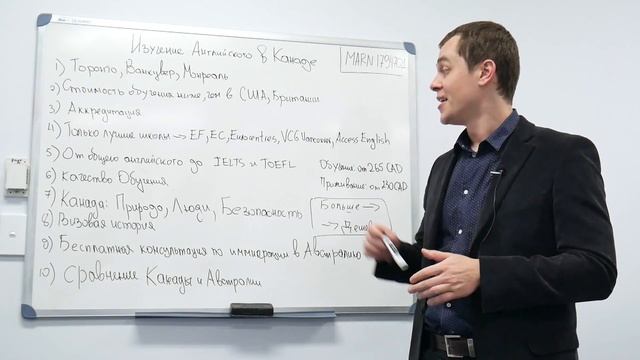 Изучение Английского в Канаде
MARN 1791701
1) Торонто, Ванкувер, Монреаль
2) Стоимость обучения ниже, чем в США, Британии
3) Аккредитация
4) Только лучшие школы → EF, EC, Eurocentres, VCG Vancouver, Access English
5) От общего английского до IELTS и TOEFL
Обучение: от 265 CAD
6) Качество Обучения
Проживание: от 250 CAD
7) Канада: Природа, Люди, Безопасность
Больше →
→ Дешев
8) Визовая история
9) Бесплатная консультация по иммиграции в Австралию
10) Сравнение Канады и Австралии